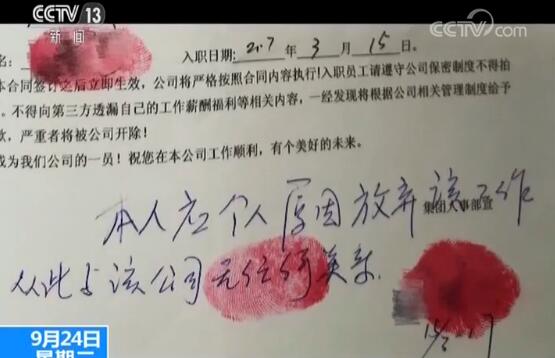 CCTV 13
新闻
CCTV.com
名:
入职日期: 2017 年 3 月 15 日。
本合同签订之后立即生效,公司将严格按照合同内容执行!入职员工请遵守公司保密制度不得拍
。不得向第三方透漏自己的工作薪酬福利等相关内容,一经发现将根据公司相关管理制度给予
款,严重者将被公司开除!
成为我们公司的一员!祝您在本公司工作顺利,有个美好的未来。
集团人事部宣
本人应个人原因放弃该工作
从此与该公司无任何关系
9月24日
星期二